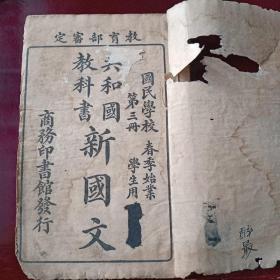 教育部審定
國民學校 春季始業
第三冊 學生用
共和國
教科書
新國文
商務印書館發行